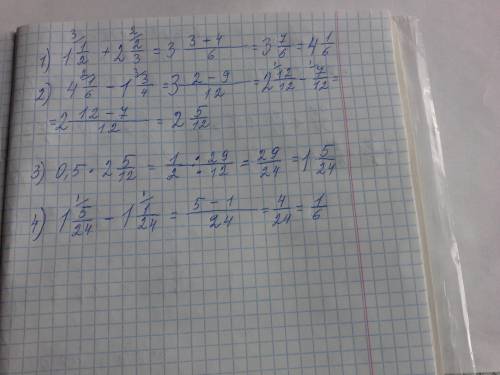 1) 1 1/2 + 2 2/3 = 3 (3+4)/6 = 3 7/6 = 4 1/6
2) 4 1/6 - 1 3/4 = 3 (2-9)/12 = 2 12/12 - 7/12 =
= 2 (12-7)/12 = 2 5/12
3) 0,5 · 2 5/12 = 1/2 · 29/12 = 29/24 = 1 5/24
4) 1 5/24 - 1 1/24 = (5-1)/24 = 4/24 = 1/6